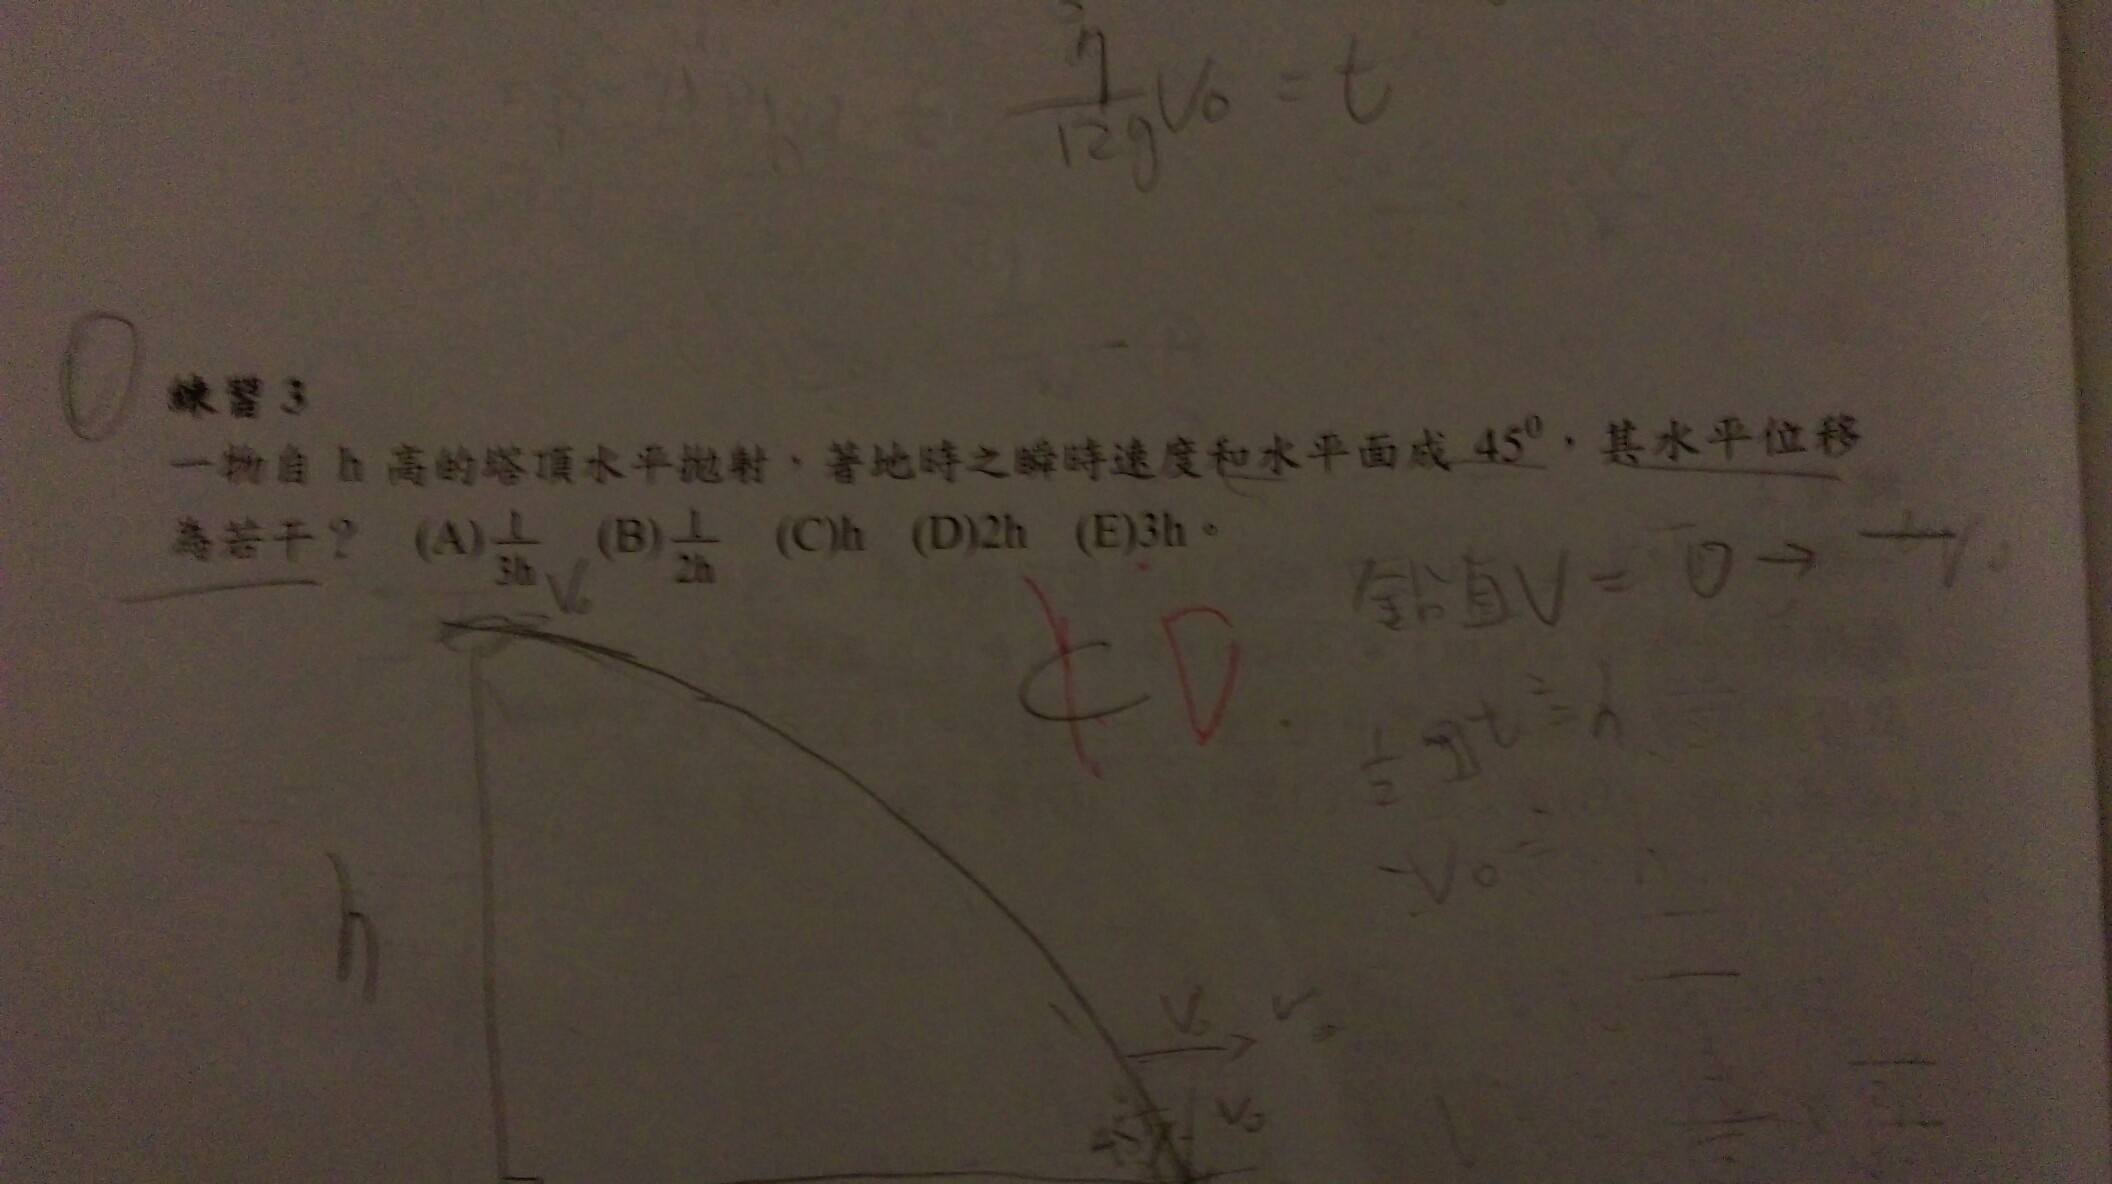 h
12g V₀ = t
練習 3
一物自 h 高的塔頂水平拋射，著地時之瞬時速度和水平面成 45⁰，其水平位移
為若干？ (A) 1/3h (B) 1/2h (C)h (D)2h (E)3h。
V₀
鉛直V = 0 →
C D
1/2 gt² = h
h
V₀
V₀
45°